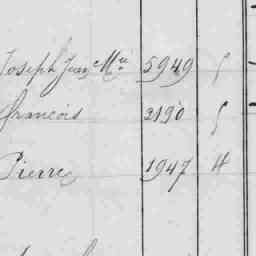 Joseph Jean Mie 5949 5
francois 2190 5
Pierre 1947 4